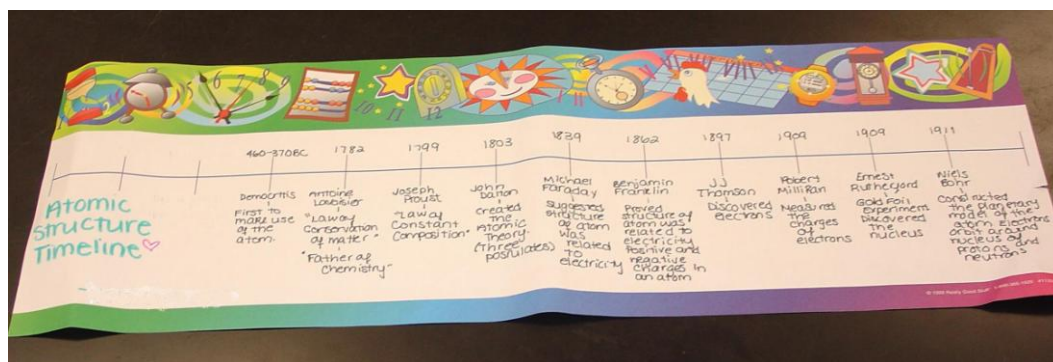 460-370BC
1782
1799
1803
1839
1862
1897
1909
1909
1911
Atomic
Structure
Timeline
Democritis
First to
make use
of the
atom.
Antoine
Lavoisier
"Law of
Conservation
of matter"
"Father of
Chemistry"
Joseph
Proust
"Law of
Constant
Composition"
John
Dalton
created
the
Atomic
Theory.
(three
postulates)
Michael
Faraday
Suggested
structure
of atom
was
related
to
electricity
Benjamin
Franklin
Proved
structure of
atom was
related to
electricity
Positive and
negative
charges in
an atom
JJ
Thomson
Discovered
electrons
Robert
Millikan
Measured
the
charges
of
electrons
Ernest
Rutherford
Gold Foil
Experiment
Discovered
the
nucleus
Niels
Bohr
Constructed
the planetary
model of the
atom electrons
orbit around
nucleus of
protons and
neutrons